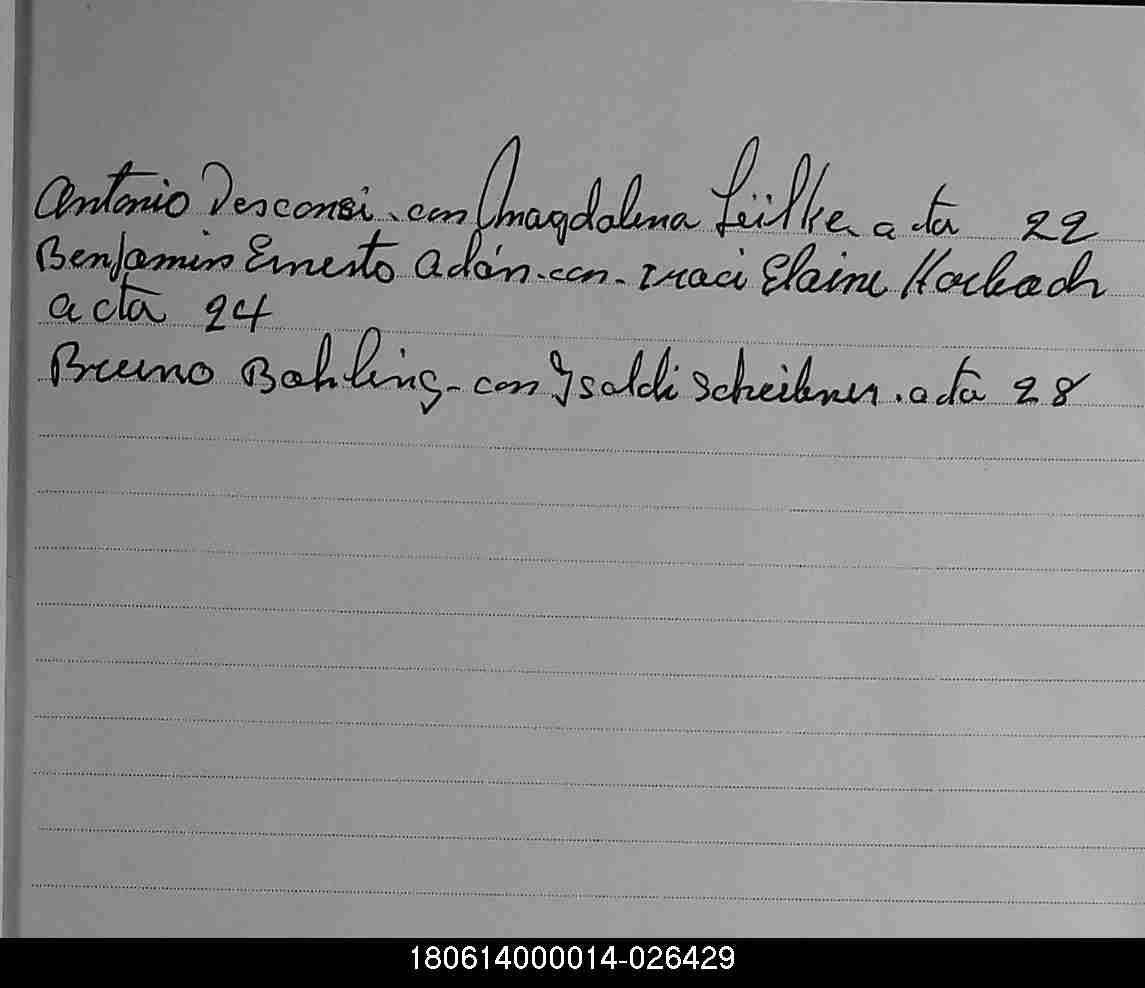 Antonio Desconsi. con Magdalena Lüilke acta 22
Benjamin Ernesto Adán-con-Iraci Elaine Horbach
acta 24
Bruno Bohling-con Isoldi Scheibner. acta 28
180614000014-026429